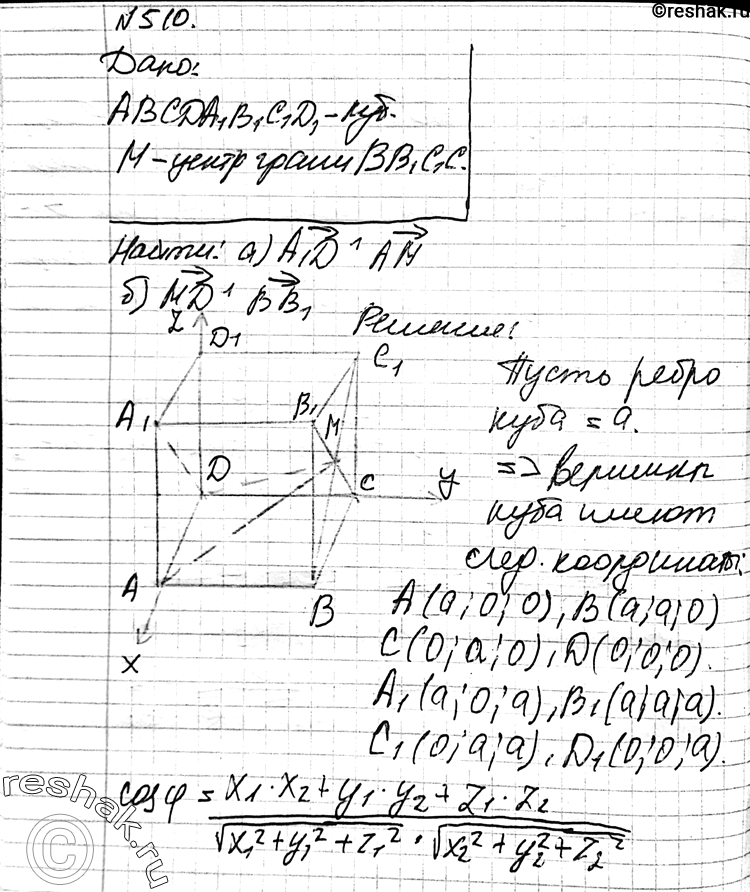 ©reshak.ru
№510.
Дано:
ABCDA₁B₁C₁D₁ – куб.
M – центр грани BB₁C₁C.
Найти: а) A₁D⃗ ^ AM⃗
б) MD⃗ ^ BB₁⃗
Решение:
Z
D₁
C₁
Пусть ребро
A₁
B₁
M
куба = a.
D
C
y
=> Вершины
куба имеют
след. координаты:
A
B
X
A(a; 0; 0), B(a; a; 0)
C(0; a; 0), D(0; 0; 0).
A₁(a; 0; a), B₁(a; a; a).
C₁(0; a; a), D₁(0; 0; a).
cos φ = (x₁·x₂ + y₁·y₂ + z₁·z₂) / (√(x₁² + y₁² + z₁²) · √(x₂² + y₂² + z₂²))
reshak.ru
©